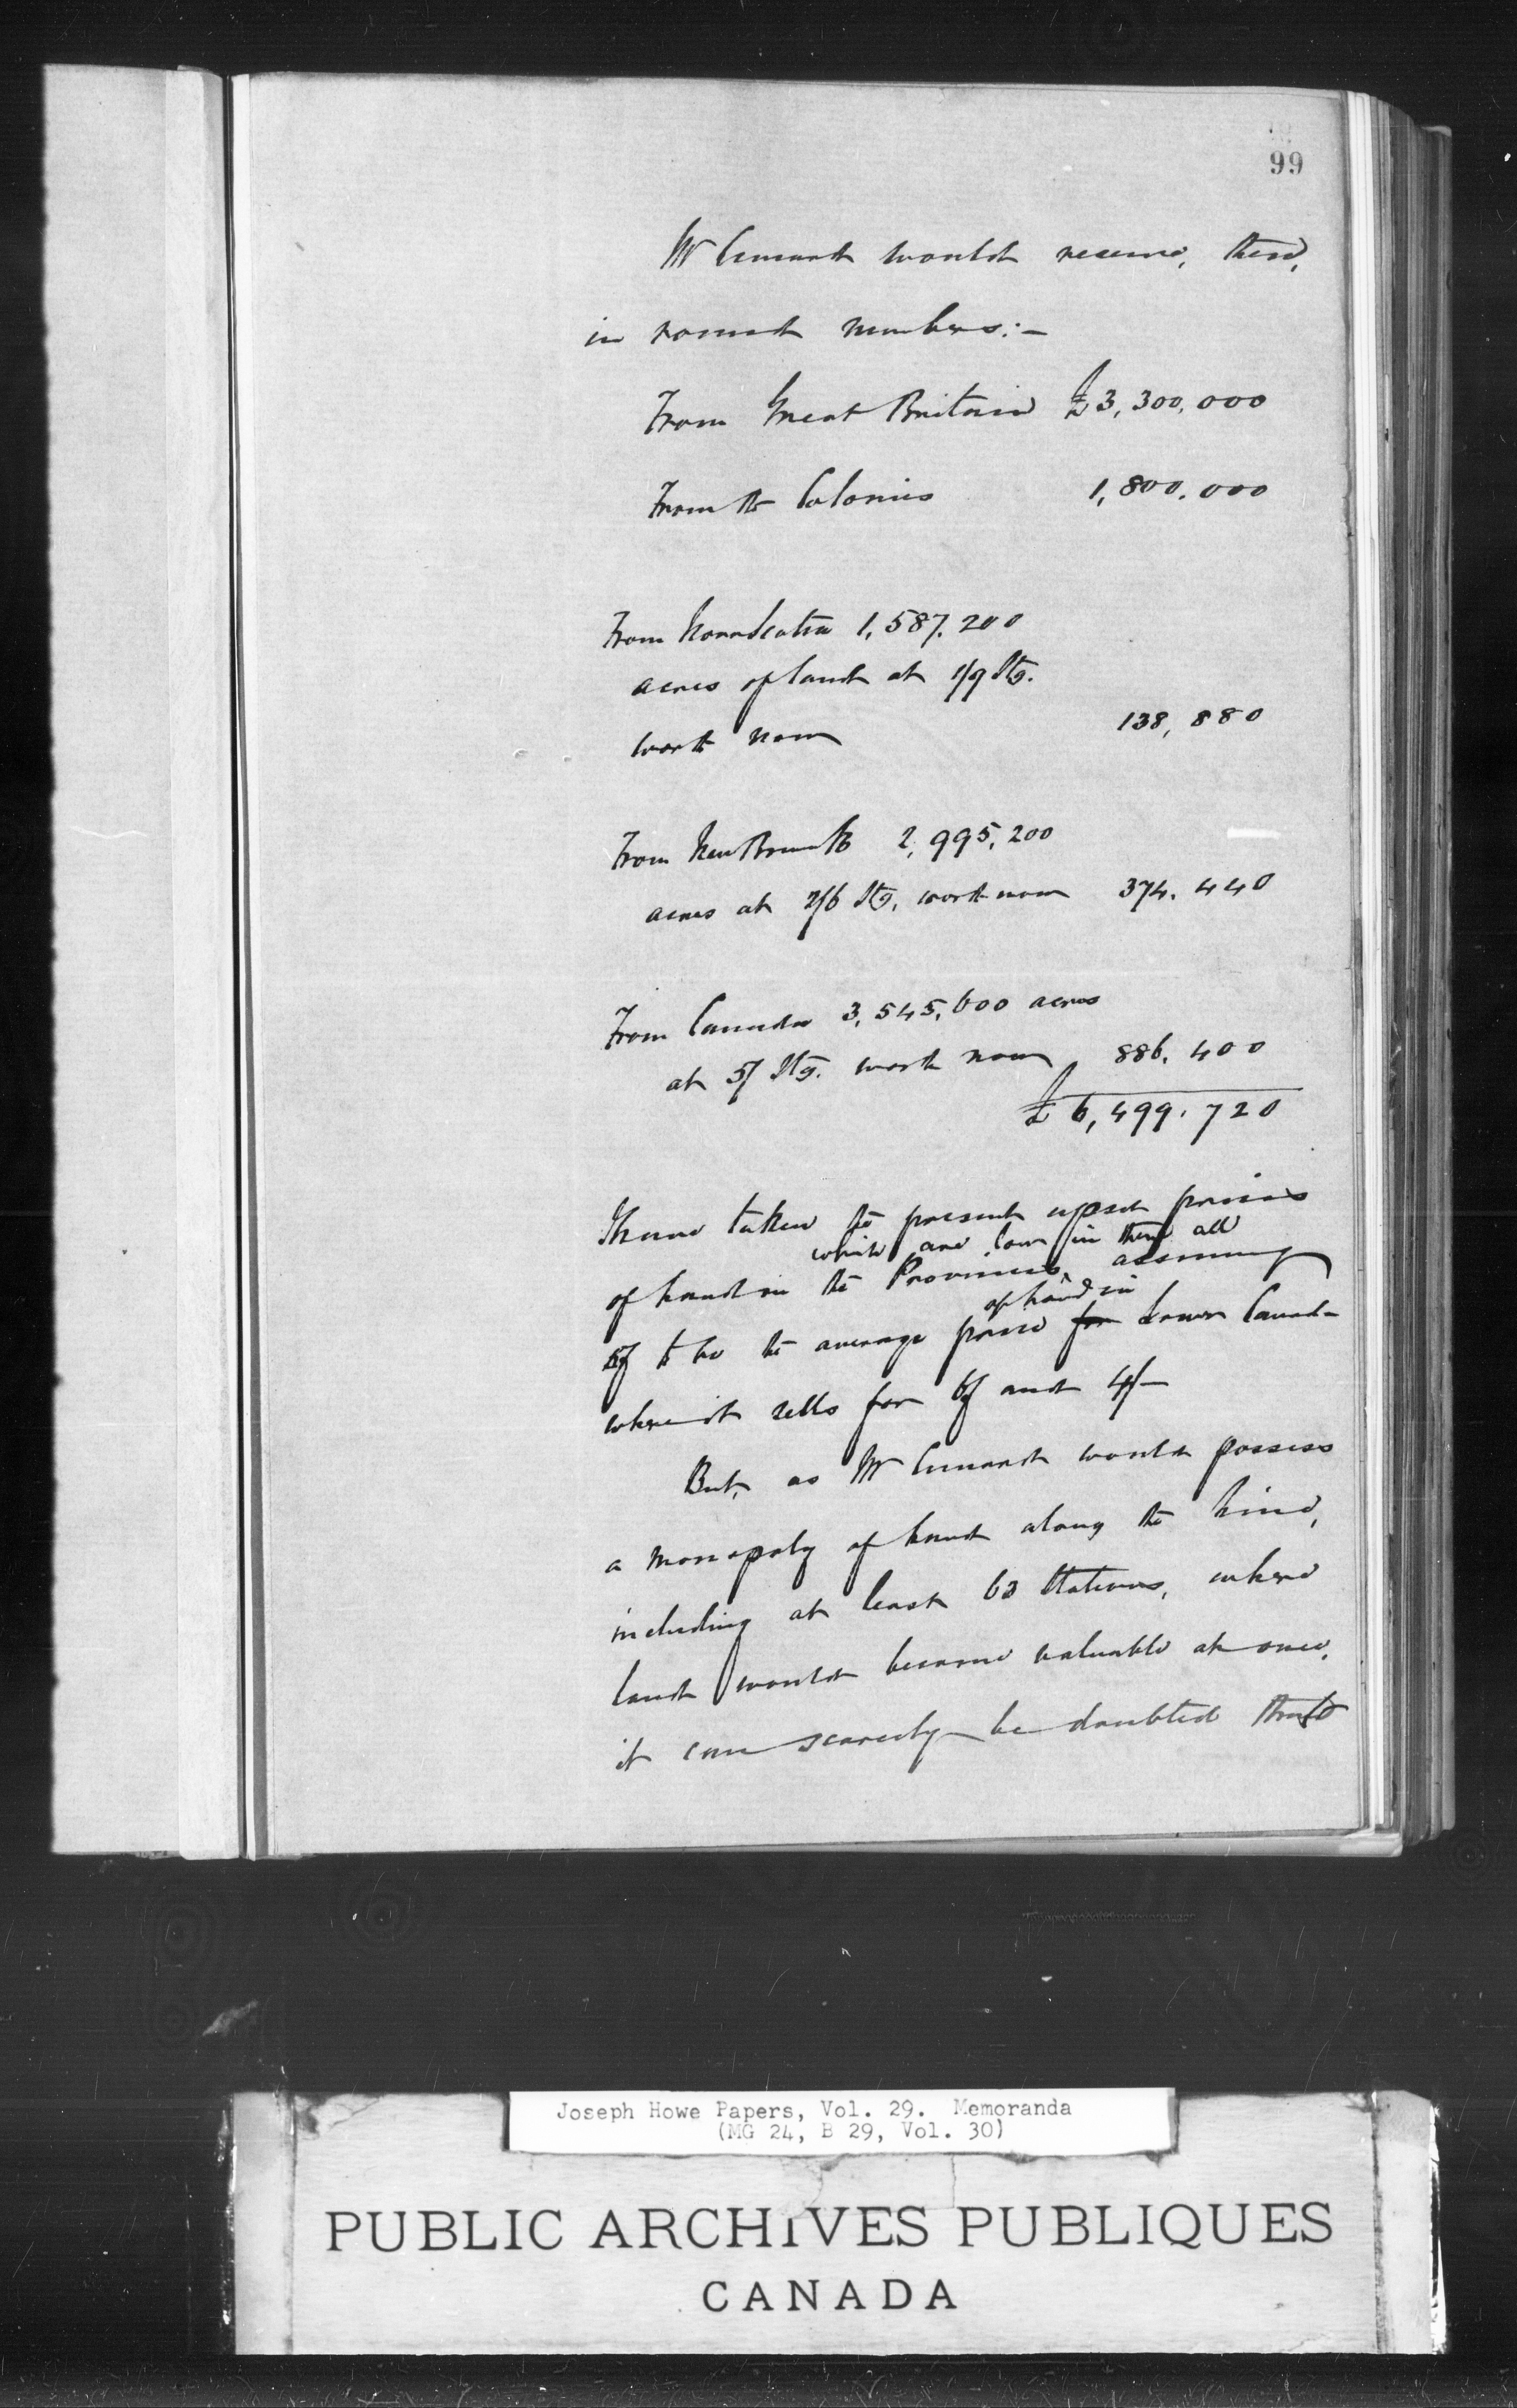 99
Mr Cunard would receive, then,
in round numbers:—
From Great Britain £3,300,000
From the Colonies 1,800,000
From Nova Scotia 1,587,200
acres of land at 1/9 Stg.
worth now 138,880
From New Brunsk 2,995,200
acres at 2/6 Stg, worth now 374,440
From Canada 3,545,600 acres
at 5/ Stg. worth now 886,400
£ 6,499,720
I have taken the present upset prices
which are low in them all
of land in the Provinces, assuming
of land in
5/ to be the average price for Lower Canada
where it sells for 6/ and 4/—
But, as Mr Cunard would possess
a monopoly of land along the Line,
including at least 63 Stations, where
land would become valuable at once,
it can scarcely be doubted that
Joseph Howe Papers, Vol. 29. Memoranda
(MG 24, B 29, Vol. 30)
PUBLIC ARCHIVES PUBLIQUES
CANADA